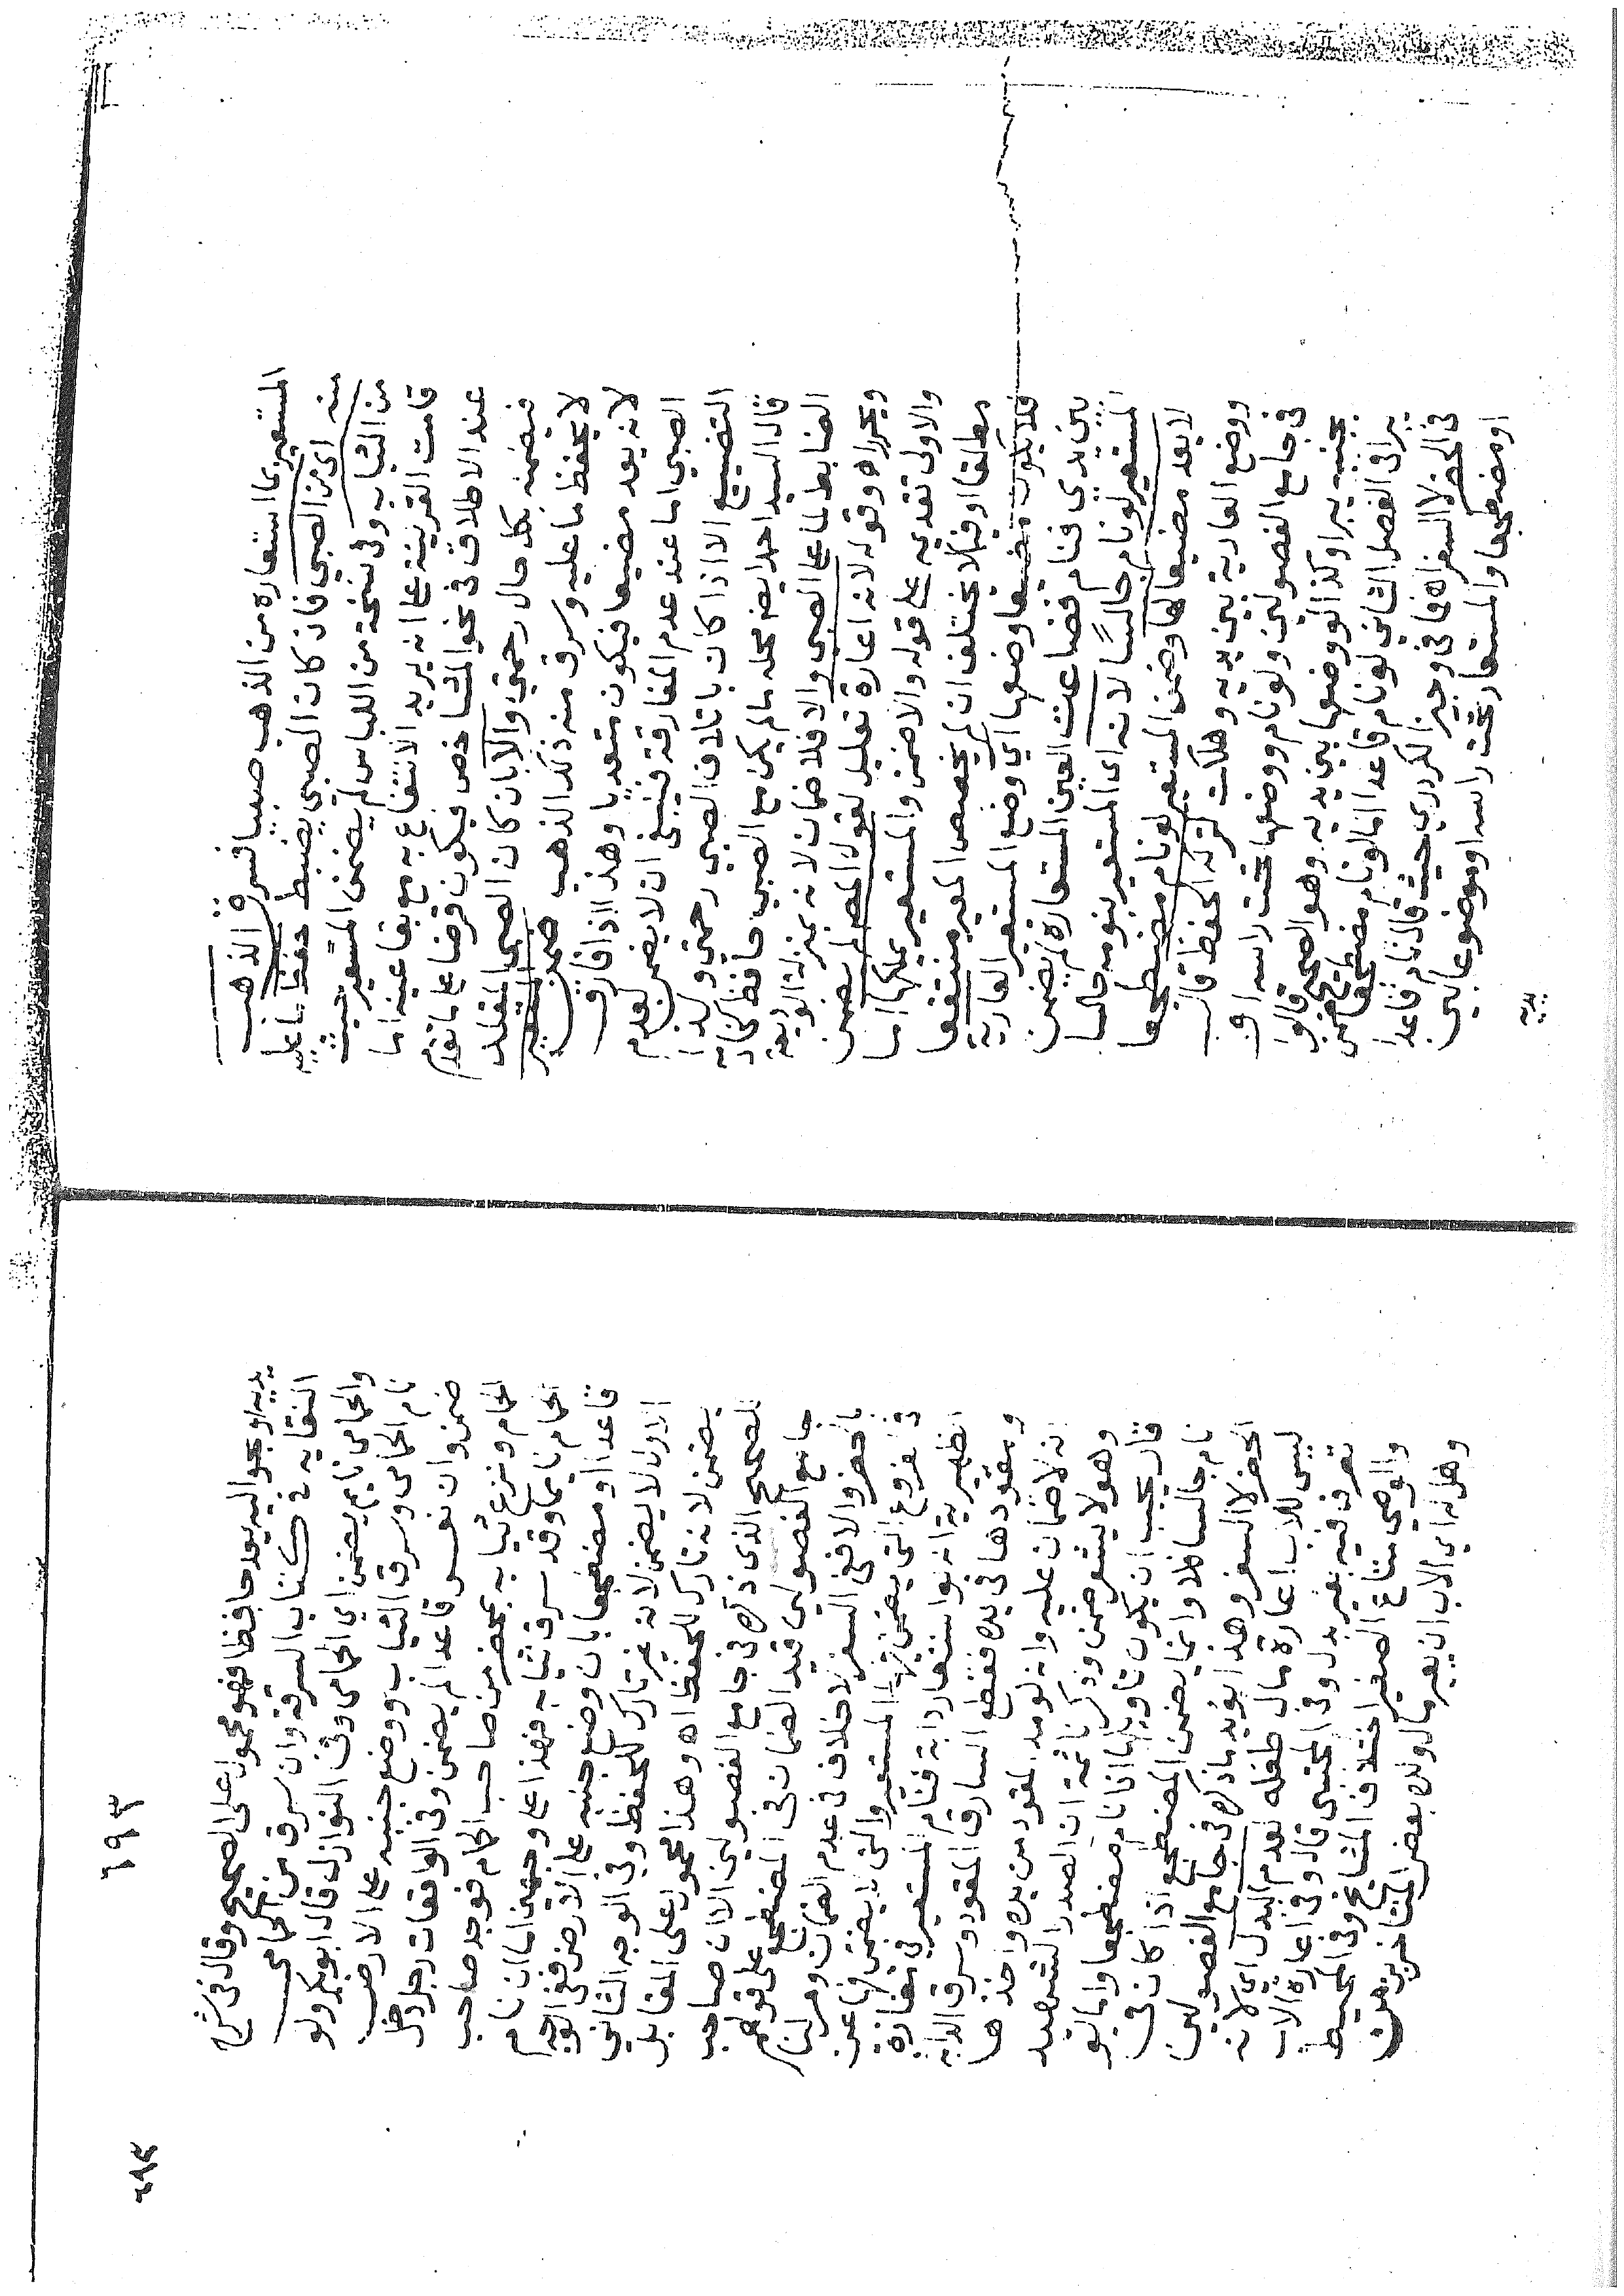 المستعير مما استعاره من الذهب صبيا فسرق الذهب
منه اى من الصبي فان كان الصبي يضبط حفظ ما عليه
من الثياب وفى نسخة من اللباس لم يضمن المستعير حيث
قامت القرينة على انه يريد الانتفاع به مع بقا عينه اما
عند الاطلاق فى نحو المشاخص فيكون قرضا على ما تقدم
فيضمنه بكل حال رحمتي والا بان كان الصبي المقلد
لا يحفظ ما عليه وسرق منه ذلك الذهب ضمن المستعير
لانه يعد مضيعا فيكون متعديا وهذا اذا فارق
الصبي اما عند عدم المفارقة فينبغى ان لا يضمن لعدم
التضييع الا اذا كان باتلاف الصبي رحمتي وكذا
قال السيد احمد ايضه محله ما لم يكن مع الصبي حافظ
الضابط لما على الصبى والا فلا ضمان لانه بمنزلة الوديعة
ويحرر اه وقوله لانه اعارة تعليل لقول المص لم يضمن
والاولى تقديمه على قوله والا ضمن والمستعير يملكها اما
مطلقا او فيما لا يختلف ان لم يخصص المعير منتفعا
فلا يكون مضيعا وضعها اي وضع المستعير العارية
بين يديه فنام فضاعت العين المستعارة لم يضمن
المستعير لو نام جالسًا لانه اى المستعير بنومه جالسا
لا يعد مضيعا لها وضمن المستعير لو نام مضطجعا
ووضع العارية بين يديه وهلكت لتركه الحفظ قال
فى جامع الفصولين ولو نام ووضعها تحت راسه او
بجنبه يبرا وكذا لو وضعها بين يديه وهو الصحيح قالوا
يبرا فى الفصل الثاني لو نام قاعدا اما لو نام مضطجعا ضمن
فى الحضر لا السفر اه فما فى وجيز الكردري حيث قال نام قاعدا
او مضطجعا والمستعار تحت راسه او موضوعا بين
يديه
٦٩٣
٦٩٣
يديه او بحواليه يعد حافظا فهو محمول على الصحيح وقال فى شرح
النقايه فى كتاب السرقة وان سرق من الحمامى
والحمامى نايم يضمن اي الحمامى وفى النوازل قال ابو بكر ولو
نام الحمامى وسرق الثياب ووضع جنبيه على الارض
ضمن وان نعس قاعدا لم يضمن وفى الواقعات رجل دخل
الحمام ونزع ثيابه بمحضر من صاحب الحمام فوجد صاحب
الحمام نايما وقد سرق ثيابه فهذا على وجهين اما ان نام
قاعدا او مضطجعا بان وضع جنبيه على الارض ففى الوجه
الاول لا يضمن لانه غير تارك للحفظ وفى الوجه الثاني
يضمن لانه تارك للحفظ اه وهذا محمول على المقابل
للصحيح الذى ذكره فى جامع الفصولين الا ان صاحب
جامع الفصولين قيد الضمان فى المضطجع على قولهم
بالحضر والا ففى السفر لا خلاف فى عدم الضمان ومر لنا
فى فروع التى يضمن بها المستعير والتى لا يضمن فيها عن
الظهيرية انه لو استعار دابة فنام المستعير فى مفازة
ومقودها فى يده فقطع السارق المقود وسرق الدابة
انه لا ضمان عليه وانه لو مد المقود من يده واخذها
وهو لا يشعر ضمن وذكرنا ثمة ان الصدر الشهيد
قال يجب ان يكون تاويلها اذا نام مضطجعا واما لو
نام جالسا فلا وانما يضمن المضطجع اذا كان فى
الحضر لا السفر وهذا يؤيد ما ذكره فى جامع الفصولين
ليس للاب اعارة مال طفله لعدم البدل اي لانه
تصرف فيه بغير بدل وفى المجتبى قال وفى اعارة الاب
والوصي متاع الصغير اختلاف المشايخ وفى المحيط
وهل له اي الاب ان يعير مال ولده بعض المتاخرين من